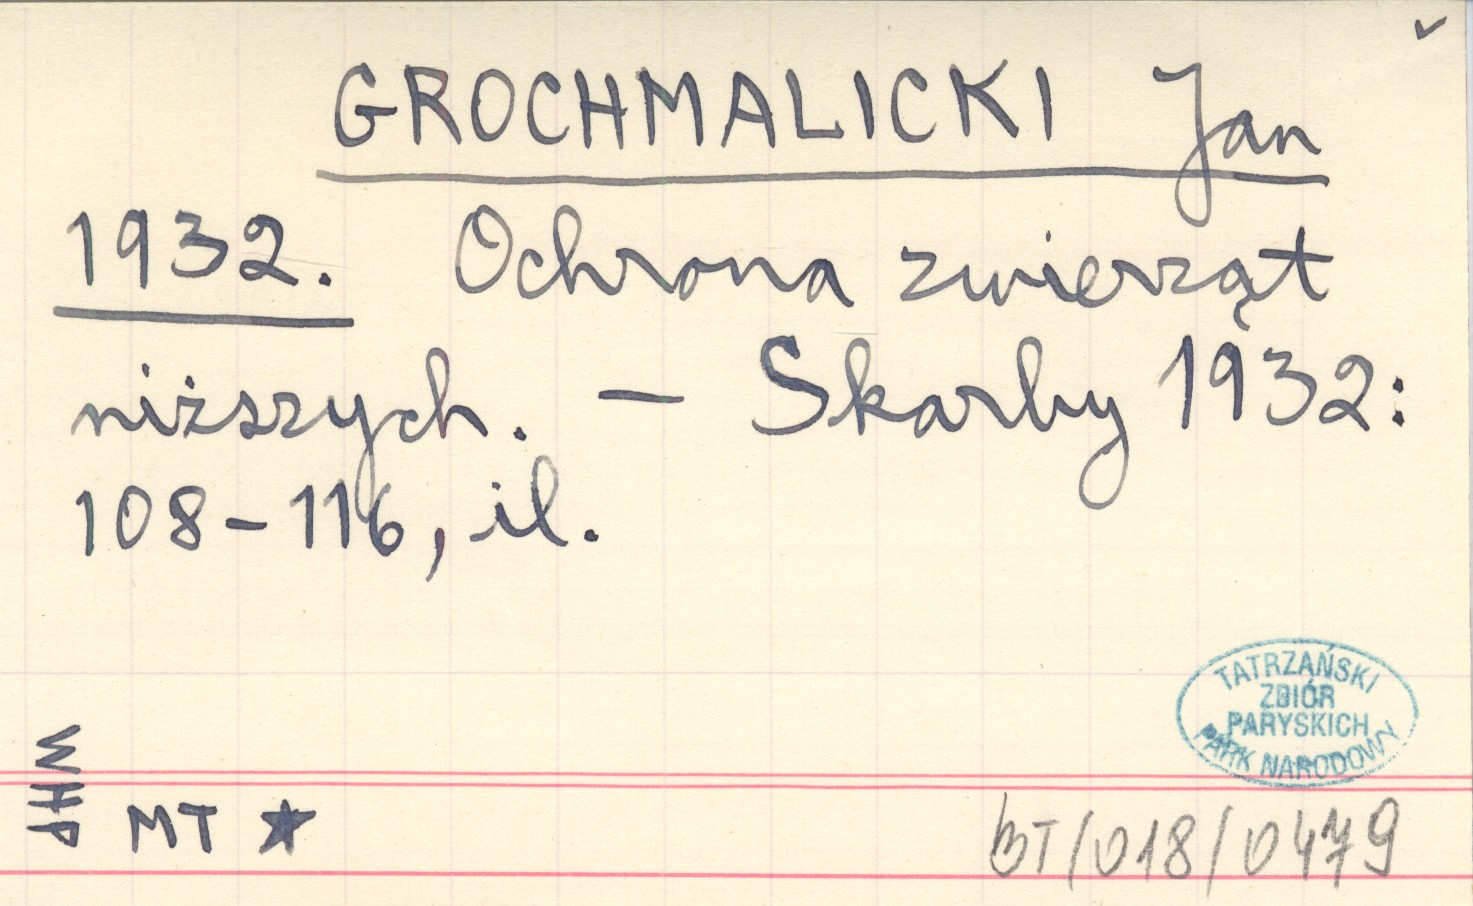 ✓
GROCHMALICKI Jan
1932. Ochrona zwierząt
niższych. – Skarby 1932:
108–116, il.
TATRZAŃSKI
ZBIÓR
PARYSKICH
PARK NARODOWY
WHP
MT ★
BT/018/0479